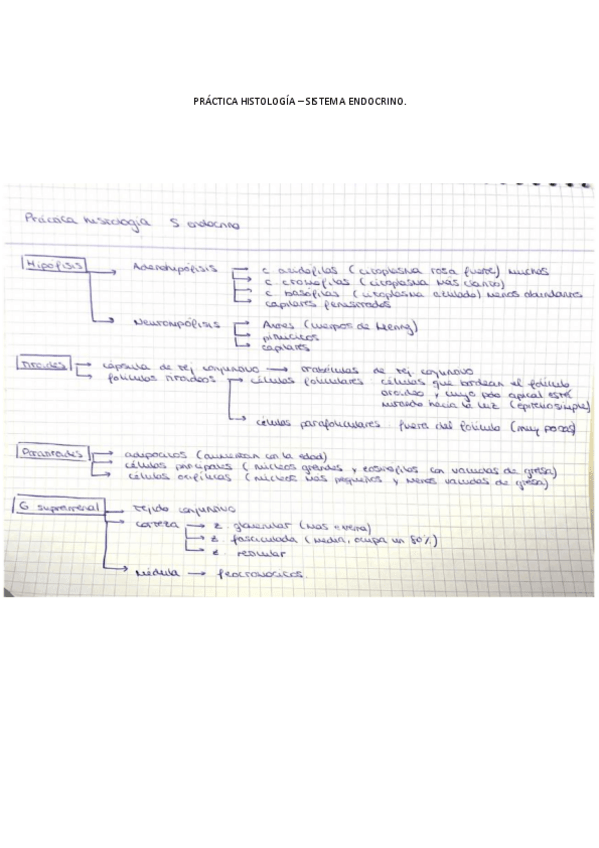 PRÁCTICA HISTOLOGÍA – SISTEMA ENDOCRINO.
Práctica histología S endocrino
Hipófisis → Adenohipófisis → c acidófilas (citoplasma rosa fuerte) muchos
→ c cromófilas (citoplasma más clarito)
→ c basófilas (citoplasma azulado) menos abundantes
→ capilares fenestrados
→ Neurohipófisis → Axones (cuerpos de Herring)
→ pituicitos
→ capilares
Tiroides → cápsula de tej conjuntivo → trabéculas de tej conjuntivo
→ folículos tiroideos → células foliculares células que bordean el folículo
tiroideo y cuyo polo apical está
mirando hacia la luz (epitelio simple)
→ células parafoliculares fuera del folículo (muy pocas)
Paratiroides → adipocitos (aumentan con la edad)
→ células principales (núcleos grandes y eosinófilos con vacuolas de grasa)
→ células oxifílicas (núcleos más pequeños y menos vacuolas de grasa)
G suprarrenal → tejido conjuntivo
→ corteza → z. glomerular (más externa)
→ z. fasciculada (media, ocupa un 80%)
→ z. reticular
→ Médula → feocromocitos.